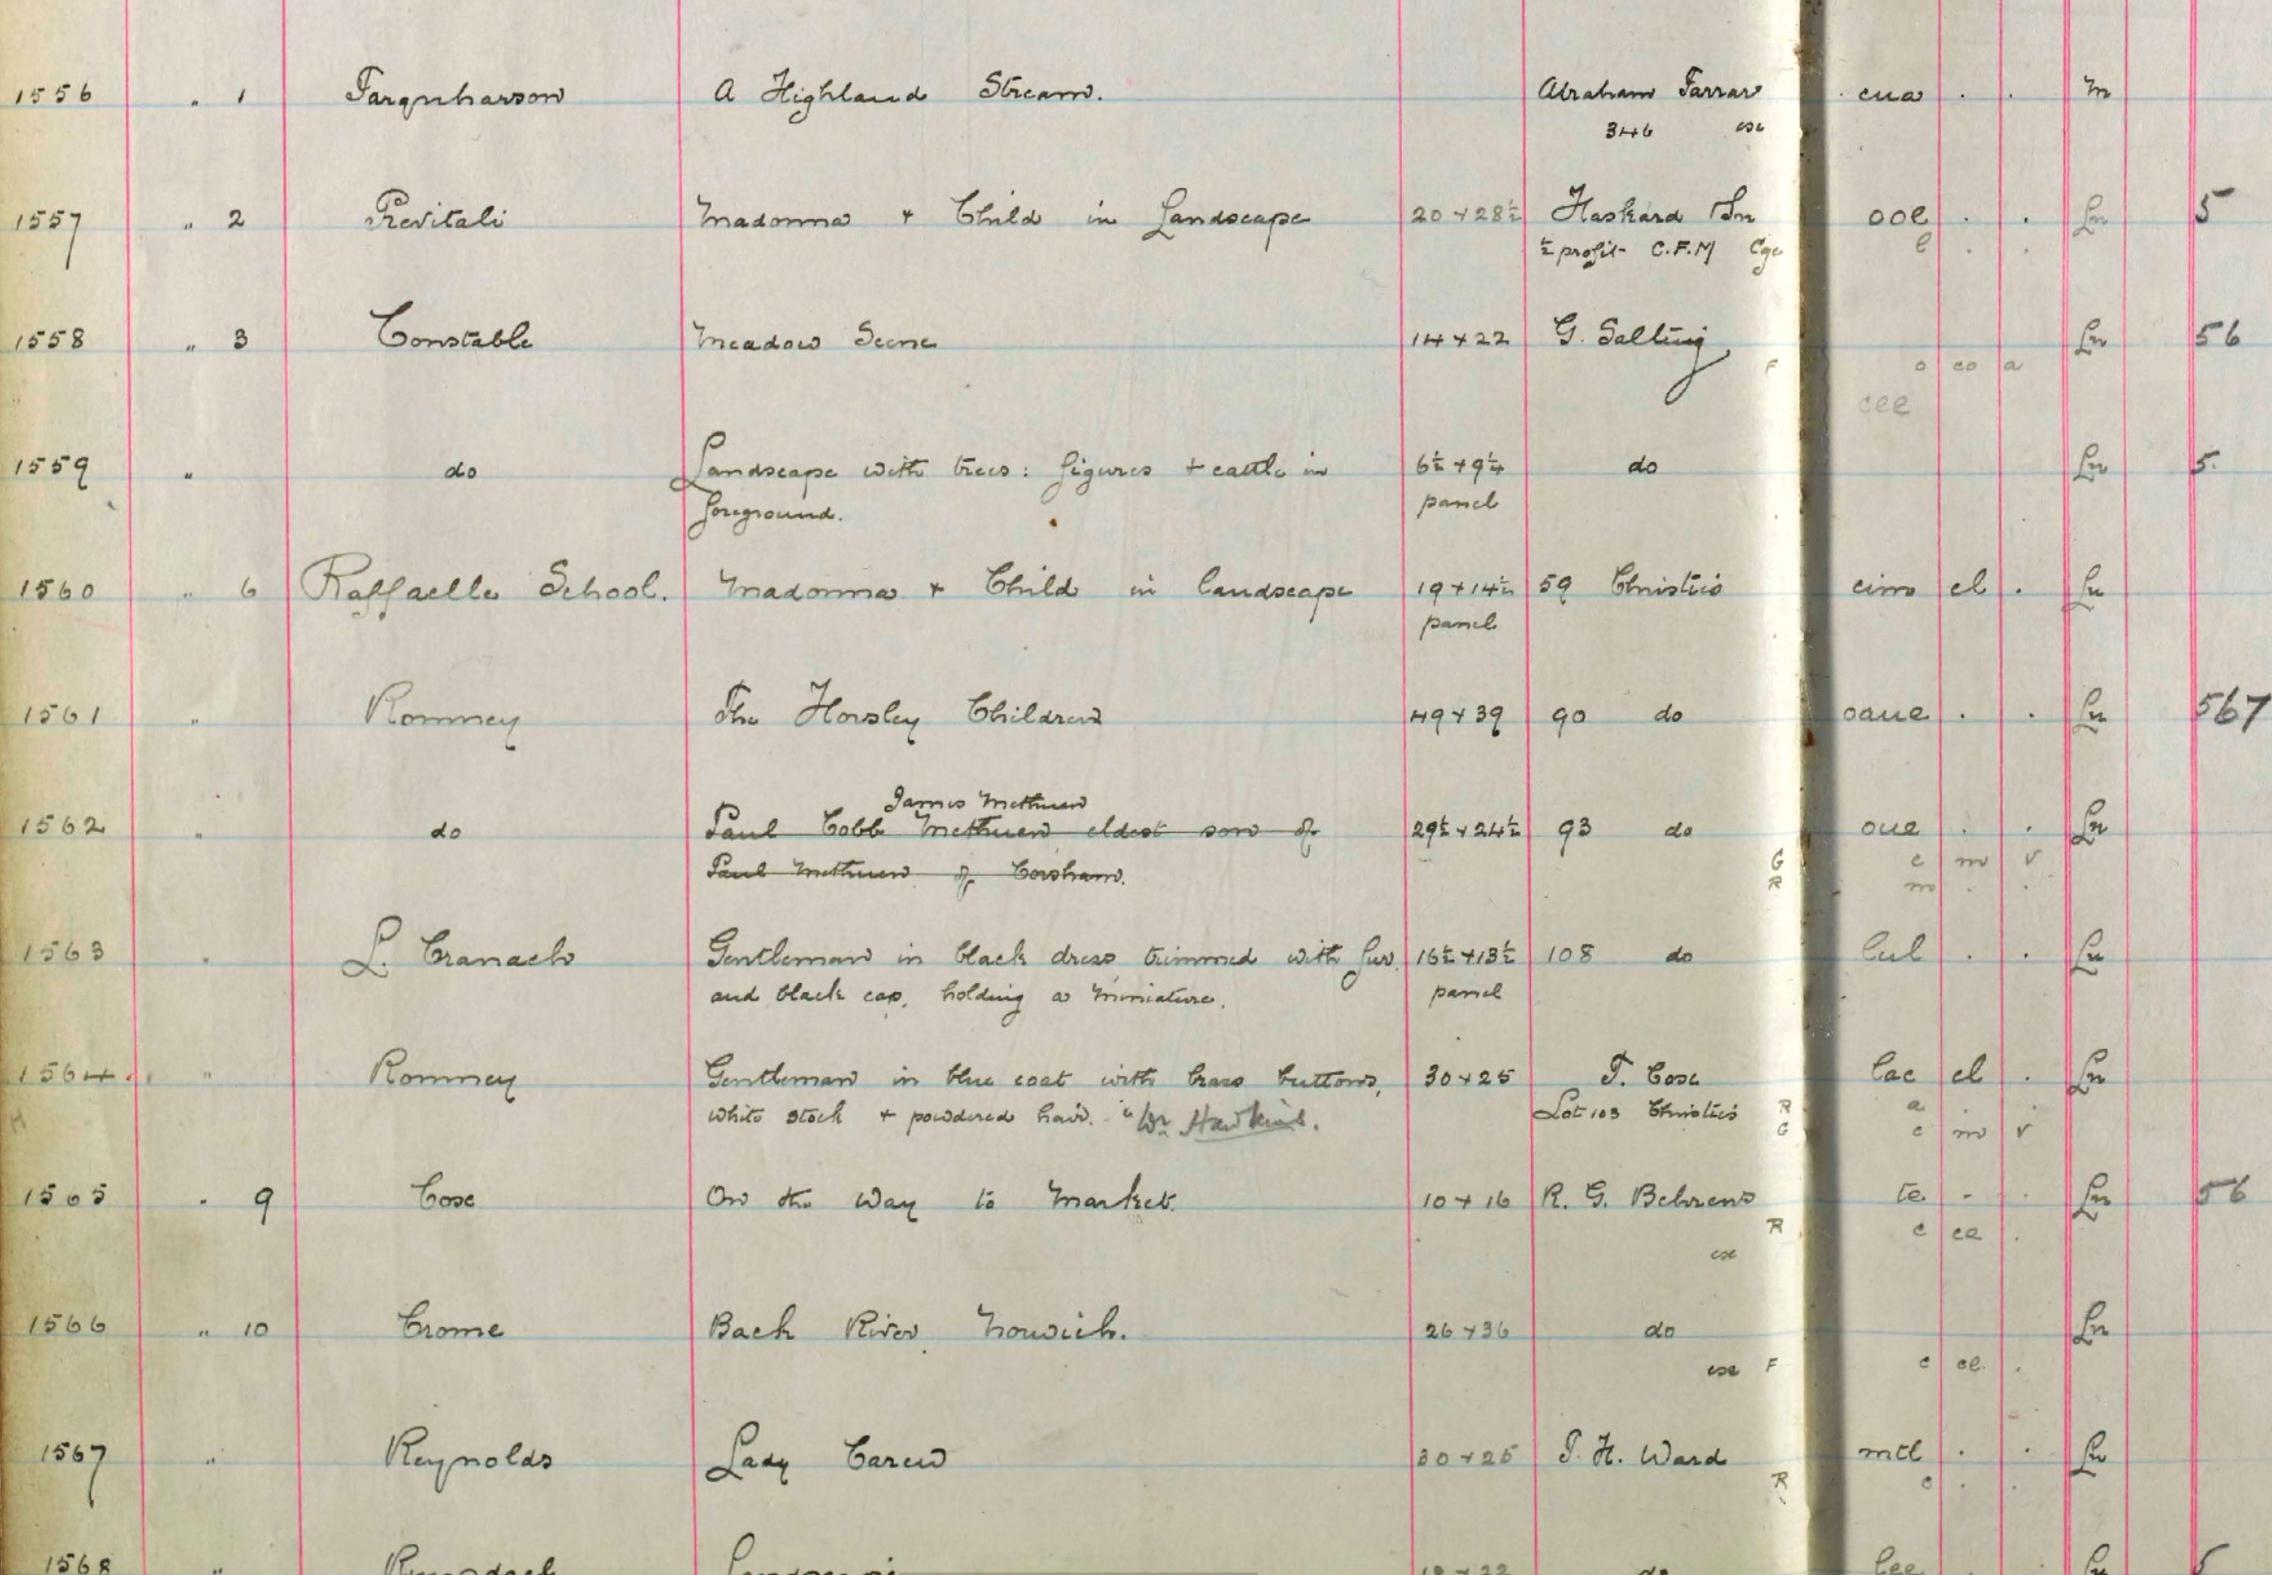 1556 " 1 Farquharson A Highland Stream. Abraham Farrar cua . . m
346 ese
1557 " 2 Previtali Madonna + Child in Landscape 20 + 28½ Haskard & Sn ooe . . Ln 5
½ profit- C.F.M Cge e . .
1558 " 3 Constable Meadow Scene 14 + 22 G. Salting Ln 56
F o eo a
cee
1559 " do Landscape with trees: figures + cattle in 6½ + 9¼ do Ln 5
foreground. panel
1560 " 6 Raffaelle School. Madonna + Child in landscape 19 + 14½ 59 Christies cim el . Ln
panel
1561 " Romney The Horsley Children 49 + 39 90 do oaue . . Ln 567
James Methuen
1562 " do Paul Cobb Methuen eldest son of 29½ + 24½ 93 do oue . . Ln
Paul Methuen of Corsham. G c m v
R m . .
1563 " L. Cranach Gentleman in black dress trimmed with fur, 16½ + 13½ 108 do lul . . Ln
and black cap, holding a miniature. panel
1564 " Romney Gentleman in blue coat with brass buttons, 30 + 25 T. Cose lac el . Ln
white stock + powdered hair. "Dr Hawkins. Lot 103 Christies R a . .
G c m v
1565 " 9 Cose On the Way to Market. 10 + 16 R. G. Behrens te - . Ln 56
R c ce .
ese
1566 " 10 Crome Back River, Norwich. 26 + 36 do Ln
ese F c ee .
1567 " Reynolds Lady Carew 30 + 25 T. H. Ward mtl . . Ln
R c . .
1568 " do lee Ln 5